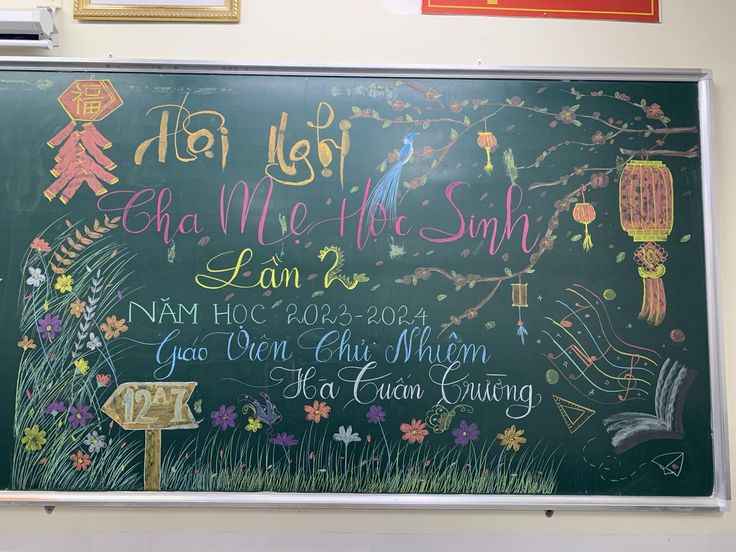 福
Hội Nghị
Cha Mẹ Học Sinh
Lần 2
NĂM HỌC 2023-2024
Giáo Viên Chủ Nhiệm
Hà Tuấn Trường
12A7